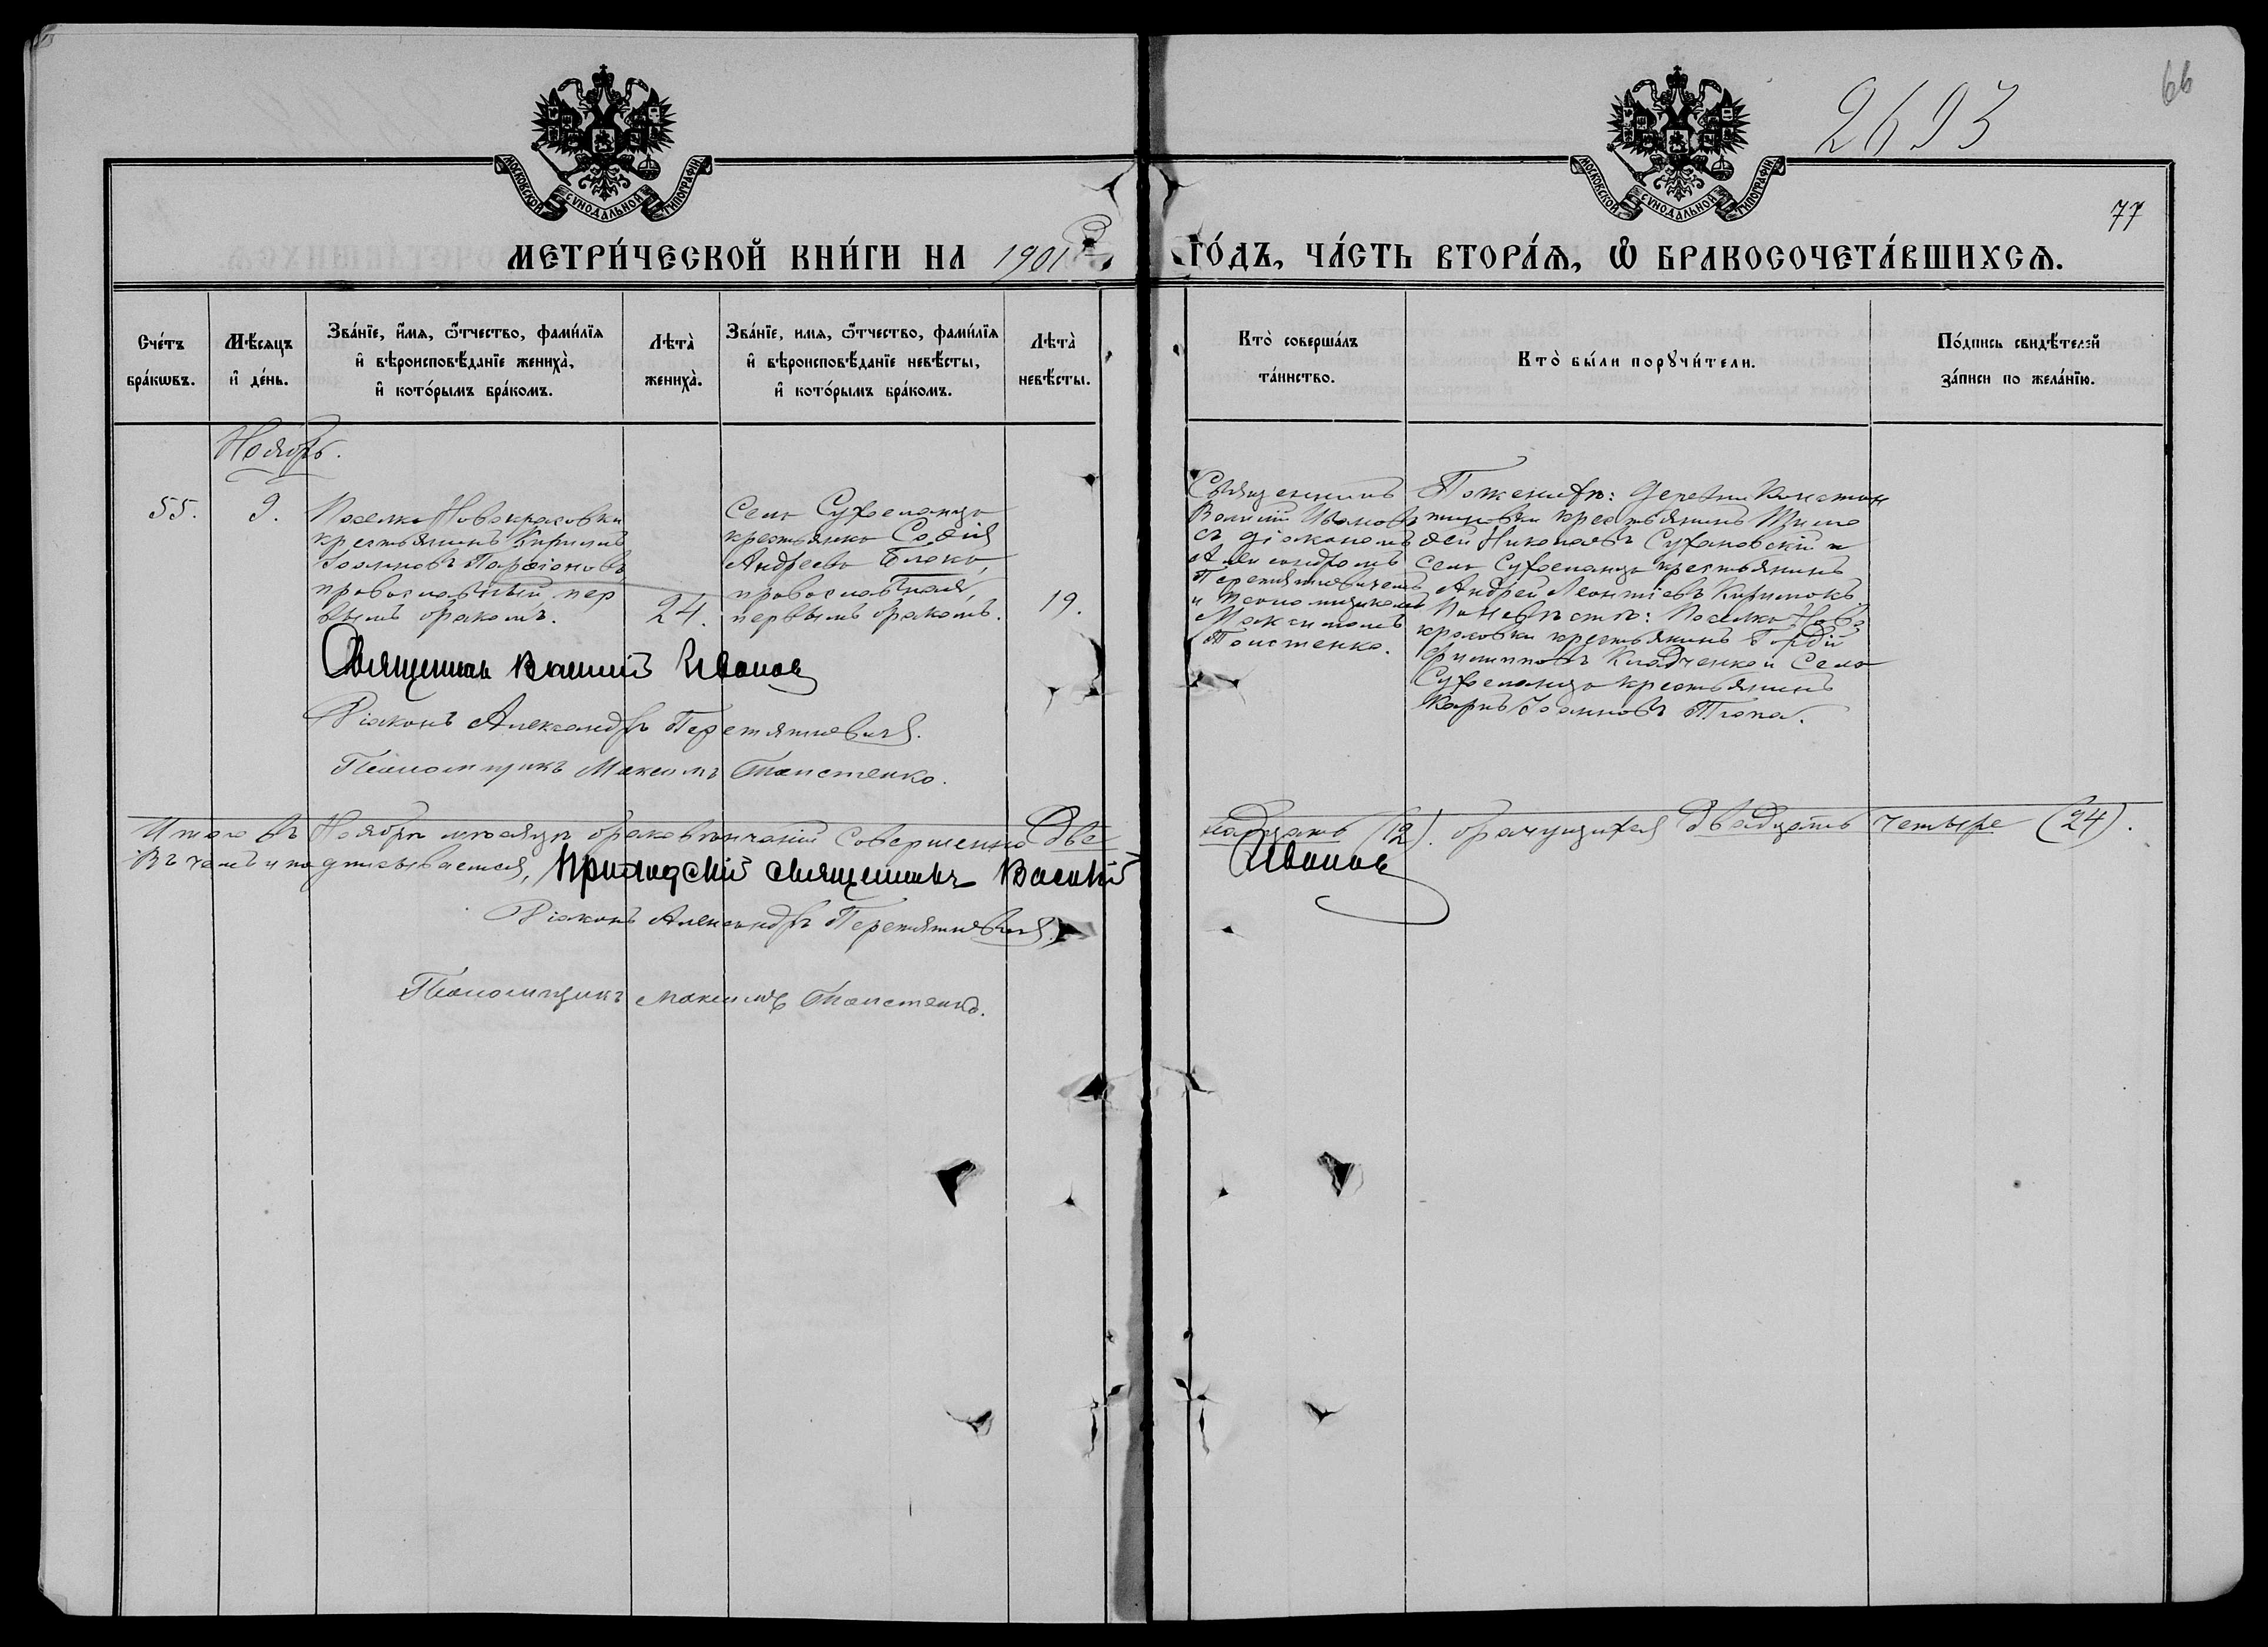 66
2693
77
МОСКОВСКОЙ СѴНОДАЛЬНОЙ ТИПОГРАФІИ
МОСКОВСКОЙ СѴНОДАЛЬНОЙ ТИПОГРАФІИ
МЕТРИ́ЧЕСКОЙ КНИ́ГИ НА 1901 й ГО́ДЪ, ЧА́СТЬ ВТОРА́Ѧ, Ѽ БРАКОСОЧЕТА́ВШИХСѦ.
Сче́тъ бра́кωвъ.
Мѣ́сяцъ и̂ де́нь.
Зва́нїе, и̂́мѧ, ѻ҆́тчество, фами́лїѧ
и̂ вѣроисповѣ́данїе жениха̀,
и̂ кото́рымъ бра́комъ.
Лѣта̀ жениха̀.
Зва́нїе, имѧ, ѻ҆́тчество, фами́лїѧ
и̂ вѣроисповѣ́данїе невѣ́сты,
и̂ кото́рымъ бра́комъ.
Лѣта̀ невѣ́сты.
Кто̀ соверша́лъ та́инство.
Кто̀ бы́ли порꙋчи́тели.
По́дпись свидѣ́телэй
за́писи по жела́нїю.
Ноябрь.
55.
9.
Поселка Новокрасовки
крестьянинъ Кириллъ
Іоанновъ Парѳіоновъ
православный, пер
вымъ бракомъ.
24.
Села
крестьянка Софія
Андреева Блоха,
православная,
первымъ бракомъ.
19.
Священникъ
Василій Ивановъ
съ діакономъ
Александромъ
Перетятковичемъ
и Псаломщикомъ
Максимомъ
Толстенко.
По женихѣ: деревни Констан
тиновки крестьянинъ Тимо
ѳей Николаевъ Сухановскій и
села крестьянинъ
Андрей Леонтіевъ
По невѣстѣ: Поселка Ново
красовки крестьянинъ Гордій
Филипповъ Кладченко и Села
крестьянинъ
Карпъ Іоанновъ
Священникъ Василій Ивановъ
Діаконъ Александръ Перетятковичъ.
Псаломщикъ Максимъ Толстенко.
Итого въ Ноябрѣ мѣсяцѣ браковѣнчаній совершенно две
надцать (12). брачущихся двадцать четыре (24).
Въ чемъ и подписываемся, Приходскій священникъ Василій Ивановъ
Діаконъ Александръ Перетятковичъ.
Псаломщикъ Максимъ Толстенко.